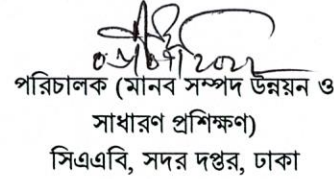 পরিচালক (মানব সম্পদ উন্নয়ন ও
সাধারণ প্রশিক্ষণ)
সিএএবি, সদর দপ্তর, ঢাকা